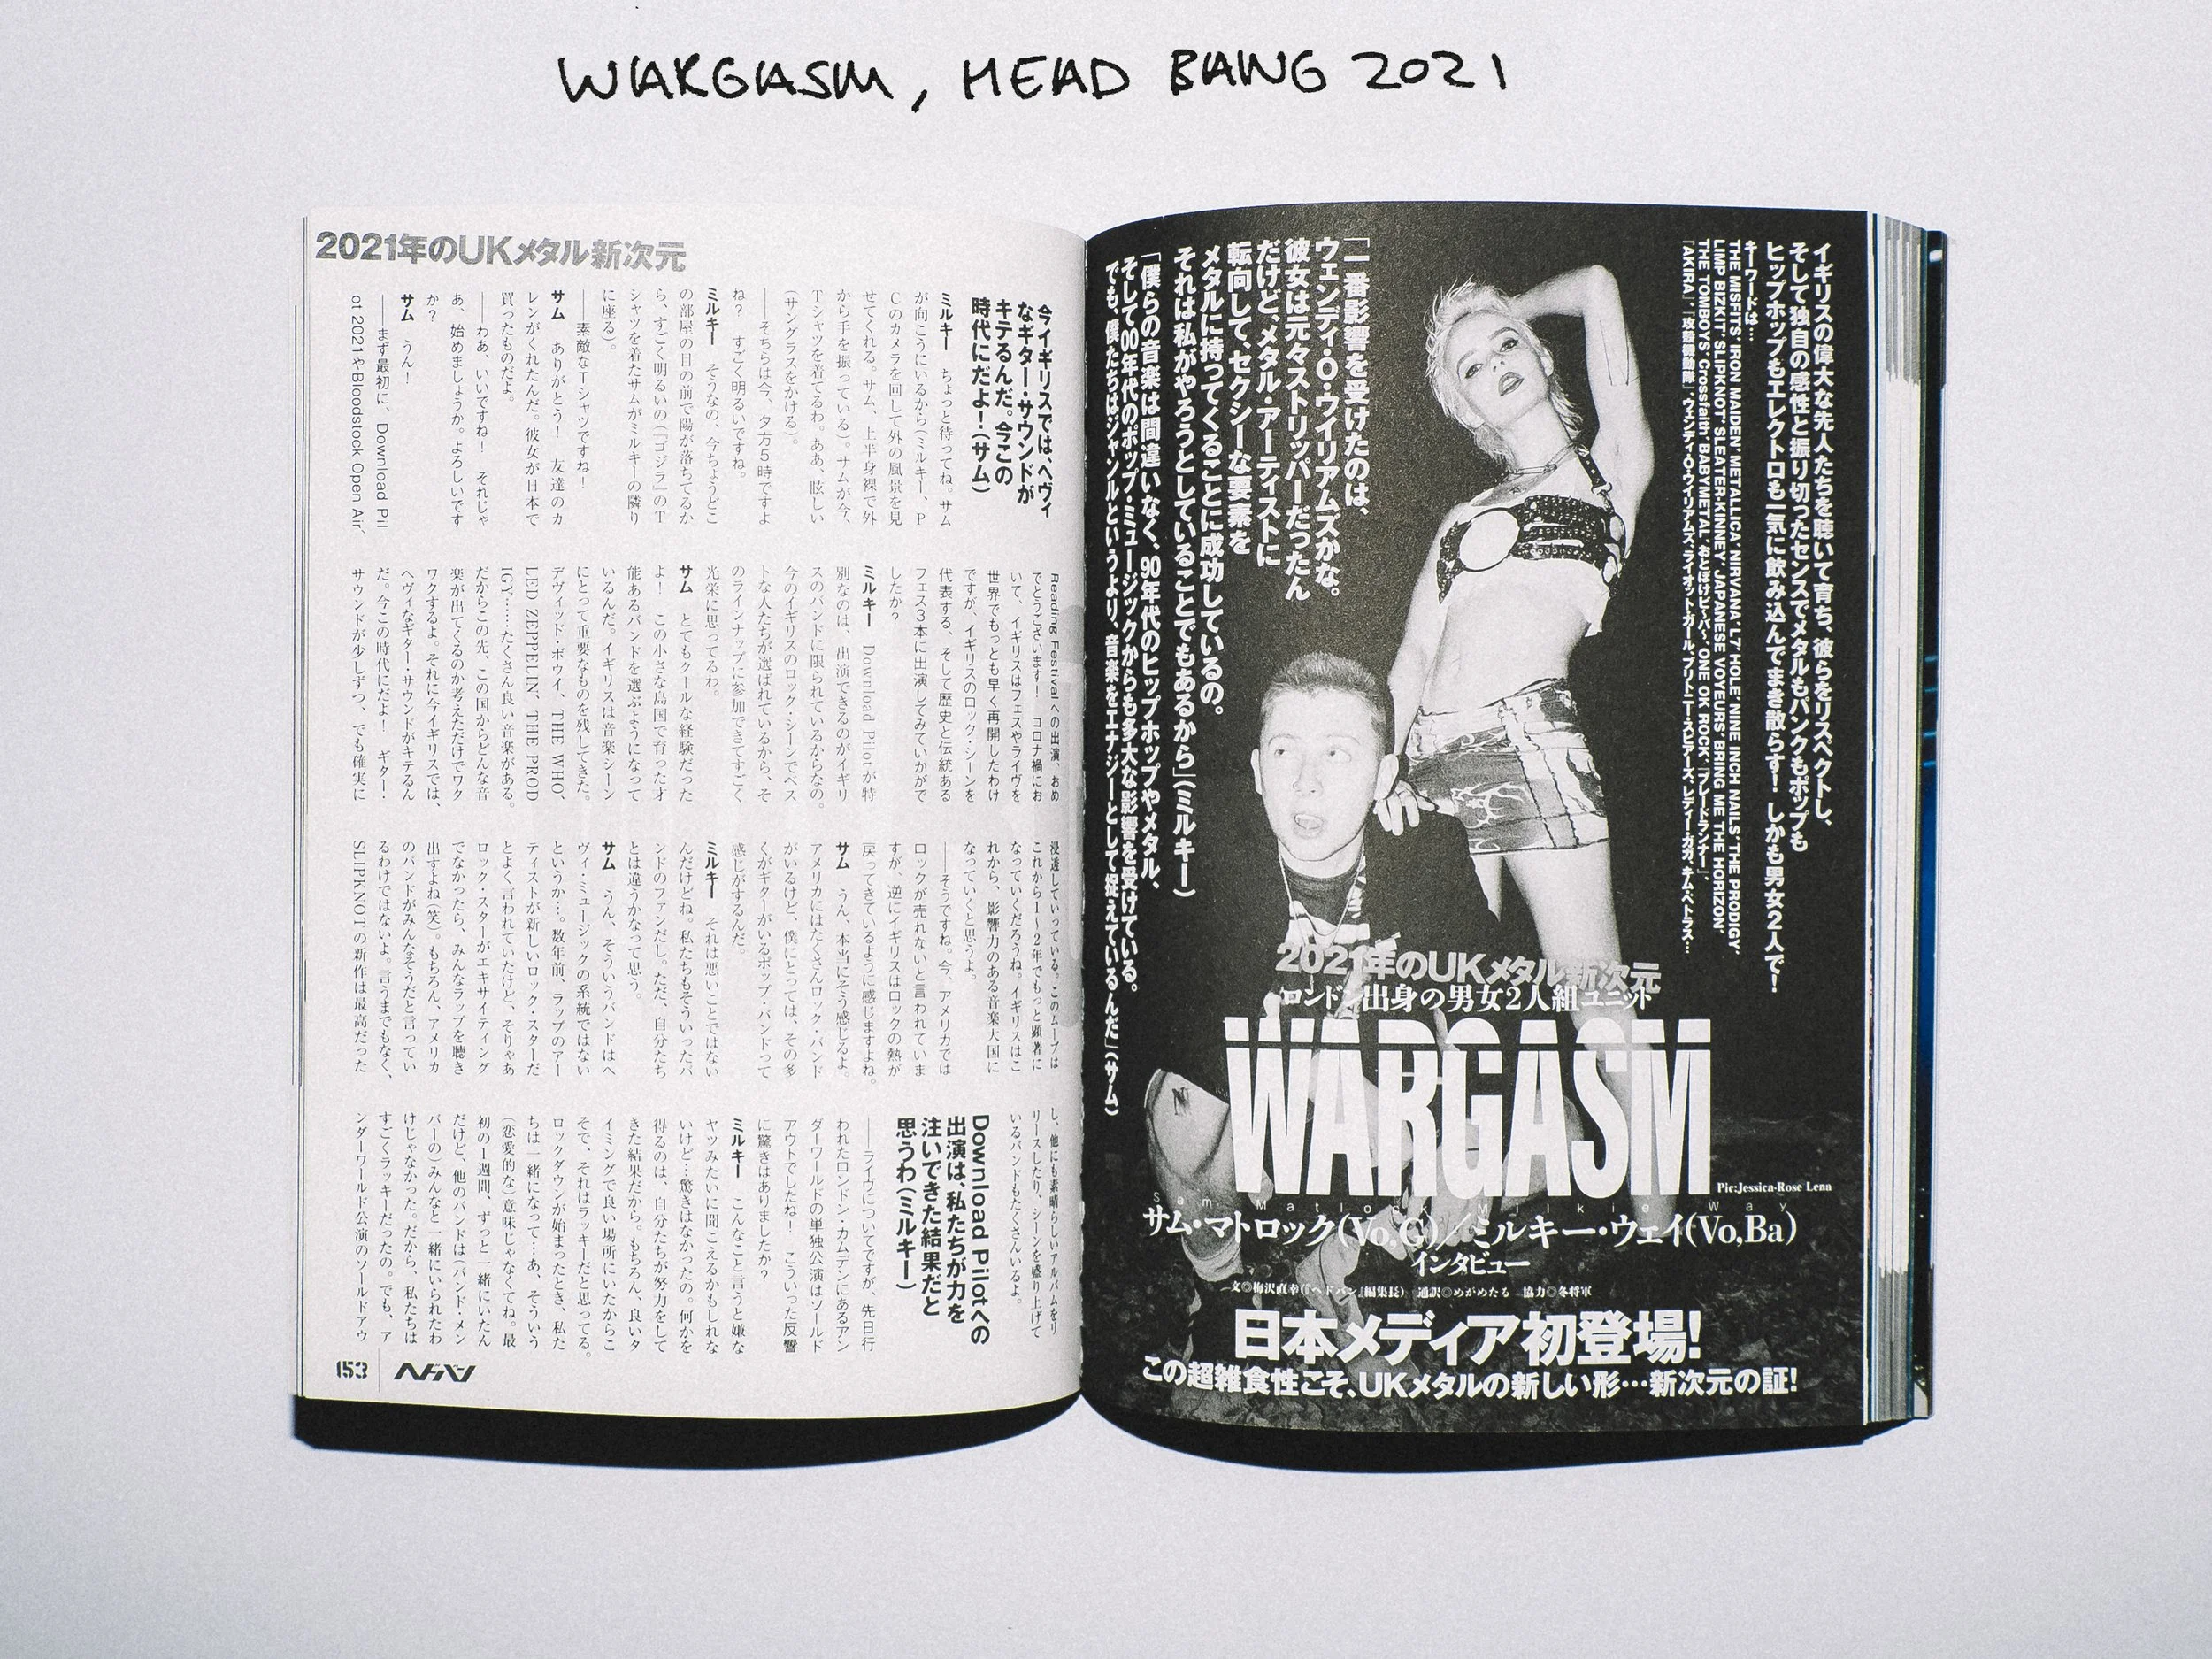 WARGASM, HEAD BANG 2021
イギリスの偉大な先人たちを聴いて育ち、彼らをリスペクトし、
そして独自の感性と振り切ったセンスでメタルもパンクもポップも
ヒップホップもエレクトロも一気に飲み込んでまき散らす！ しかも男女2人で！
キーワードは…
THE MISFITS' IRON MAIDEN' METALLICA' NIRVANA' L7' HOLE' NINE INCH NAILS' THE PRODIGY'
LIMP BIZKIT' SLIPKNOT' SLEATER-KINNEY' JAPANESE VOYEURS' BRING ME THE HORIZON'
THE TOMBOYS' Crossfaith' BABYMETAL' おとぼけビ〜バ〜、ONE OK ROCK、『ブレードランナー』、
『AKIRA』、『攻殻機動隊』、ウェンディ・O・ウイリアムズ、ライオット・ガール、ブリトニー・スピアーズ、レディー・ガガ、キム・ペトラス…
「一番影響を受けたのは、
ウェンディ・O・ウイリアムズかな。
彼女は元々ストリッパーだったん
だけど、メタル・アーティストに
転向して、セクシーな要素を
メタルに持ってくることに成功しているの。
それは私がやろうとしていることでもあるから」（ミルキー）
「僕らの音楽は間違いなく、90年代のヒップホップやメタル、
そして00年代のポップ・ミュージックからも多大な影響を受けている。
でも、僕たちはジャンルというより、音楽をエナジーとして捉えているんだ」（サム）
2021年のUKメタル新次元
ロンドン出身の男女2人組ユニット
WARGASM
Pic:Jessica-Rose Lena
Sam Matlock Milkie Way
サム・マトロック(Vo,G)／ミルキー・ウェイ(Vo,Ba)
インタビュー
文◎梅沢直幸(『ヘドバン』編集長) 通訳◎めがめたる 協力◎冬将軍
日本メディア初登場！
この超雑食性こそ、UKメタルの新しい形…新次元の証！
2021年のUKメタル新次元
今イギリスでは、ヘヴィ
なギター・サウンドが
キテるんだ。今この
時代にだよ！（サム）
ミルキー ちょっと待ってね。サム
が向こうにいるから（ミルキー、P
Cのカメラを回して外の風景を見
せてくれる。サム、上半身裸で外
から手を振っている）。サムが今、
Tシャツを着てるわ。ああ、眩しい
（サングラスをかける）。
――そちらは今、夕方5時ですよ
ね？ すごく明るいですね。
ミルキー そうなの、今ちょうどこ
の部屋の目の前で陽が落ちてるか
ら、すごく明るいの（『ゴジラ』のT
シャツを着たサムがミルキーの隣り
に座る）。
――素敵なTシャツですね！
サム ありがとう！ 友達のカ
レンがくれたんだ。彼女が日本で
買ったものだよ。
――わあ、いいですね！ それじゃ
あ、始めましょうか。よろしいです
か？
サム うん！
――まず最初に、Download Pil
ot 2021やBloodstock Open Air、
Reading Festivalへの出演、おめ
でとうございます！ コロナ禍にお
いて、イギリスはフェスやライヴを
世界でもっとも早く再開したわけ
ですが、イギリスのロック・シーンを
代表する、そして歴史と伝統ある
フェス3本に出演してみていかがで
したか？
ミルキー Download Pilotが特
別なのは、出演できるのがイギリ
スのバンドに限られているからなの。
今のイギリスのロック・シーンでベス
トな人たちが選ばれているから、そ
のラインナップに参加できてすごく
光栄に思ってるわ。
サム とてもクールな経験だった
よ！ この小さな島国で育った才
能あるバンドを選ぶようになって
いるんだ。イギリスは音楽シーン
にとって重要なものを残してきた。
デヴィッド・ボウイ、THE WHO、
LED ZEPPELIN、THE PROD
IGY……たくさん良い音楽がある。
だからこの先、この国からどんな音
楽が出てくるのか考えただけでワク
ワクするよ。それに今イギリスでは、
ヘヴィなギター・サウンドがキテるん
だ。今この時代にだよ！ ギター・
サウンドが少しずつ、でも確実に
浸透していっている。このムーブは
これから1〜2年でもっと顕著に
なっていくだろうね。イギリスはこ
れから、影響力のある音楽大国に
なっていくと思うよ。
――そうですね。今、アメリカでは
ロックが売れないと言われていま
すが、逆にイギリスはロックの熱が
戻ってきているように感じますよね。
サム うん、本当にそう感じるよ。
アメリカにはたくさんロック・バンド
がいるけど、僕にとっては、その多
くがギターがいるポップ・バンドって
感じがするんだ。
ミルキー それは悪いことではない
んだけどね。私たちもそういったバ
ンドのファンだし。ただ、自分たち
とは違うかなって思う。
サム うん、そういうバンドはヘ
ヴィ・ミュージックの系統ではない
というか…。数年前、ラップのアー
ティストが新しいロック・スターだ
とよく言われていたけど、そりゃあ
ロック・スターがエキサイティング
でなかったら、みんなラップを聴き
出すよね（笑）。もちろん、アメリカ
のバンドがみんなそうだと言ってい
るわけではないよ。言うまでもなく、
SLIPKNOTの新作は最高だった
し、他にも素晴らしいアルバムをリ
リースしたり、シーンを盛り上げて
いるバンドもたくさんいるよ。
Download Pilotへの
出演は、私たちが力を
注いできた結果だと
思うわ（ミルキー）
――ライヴについてですが、先日行
われたロンドン・カムデンにあるアン
ダーワールドの単独公演はソールド
アウトでしたね！ こういった反響
に驚きはありましたか？
ミルキー こんなこと言うと嫌な
ヤツみたいに聞こえるかもしれな
いけど…驚きはなかったの。何かを
得るのは、自分たちが努力をして
きた結果だから。もちろん、良いタ
イミングで良い場所にいたからこ
そで、それはラッキーだと思ってる。
ロックダウンが始まったとき、私た
ちは一緒になって…あ、そういう
（恋愛的な）意味じゃなくてね。最
初の1週間、ずっと一緒にいたん
だけど、他のバンドは（バンド・メン
バーの）みんなと一緒にいられたわ
けじゃなかった。だから、私たちは
すごくラッキーだったの。でも、ア
ンダーワールド公演のソールドアウ
153 ヘドバン